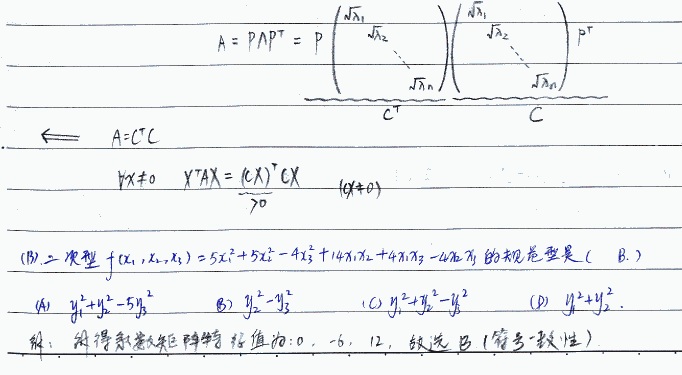 A = PΛPᵀ = P (√λ₁ √λ₂ ⋱ √λₙ) (√λ₁ √λ₂ ⋱ √λₙ) Pᵀ
Cᵀ C
⇐ A=CᵀC
∀x≠0 XᵀAX = (CX)ᵀCX (CX≠0)
>0
(13) 二次型 f(x₁,x₂,x₃) = 5x₁²+5x₂²-4x₃²+14x₁x₂+4x₁x₃-4x₂x₃ 的规范型是( B. )
(A) y₁²+y₂²-5y₃² B) y₂²-y₃² (C) y₁²+y₂²-y₃² (D) y₁²+y₂².
解: 解得系数矩阵特征值为:0, -6, 12, 故选B (符号一致性)